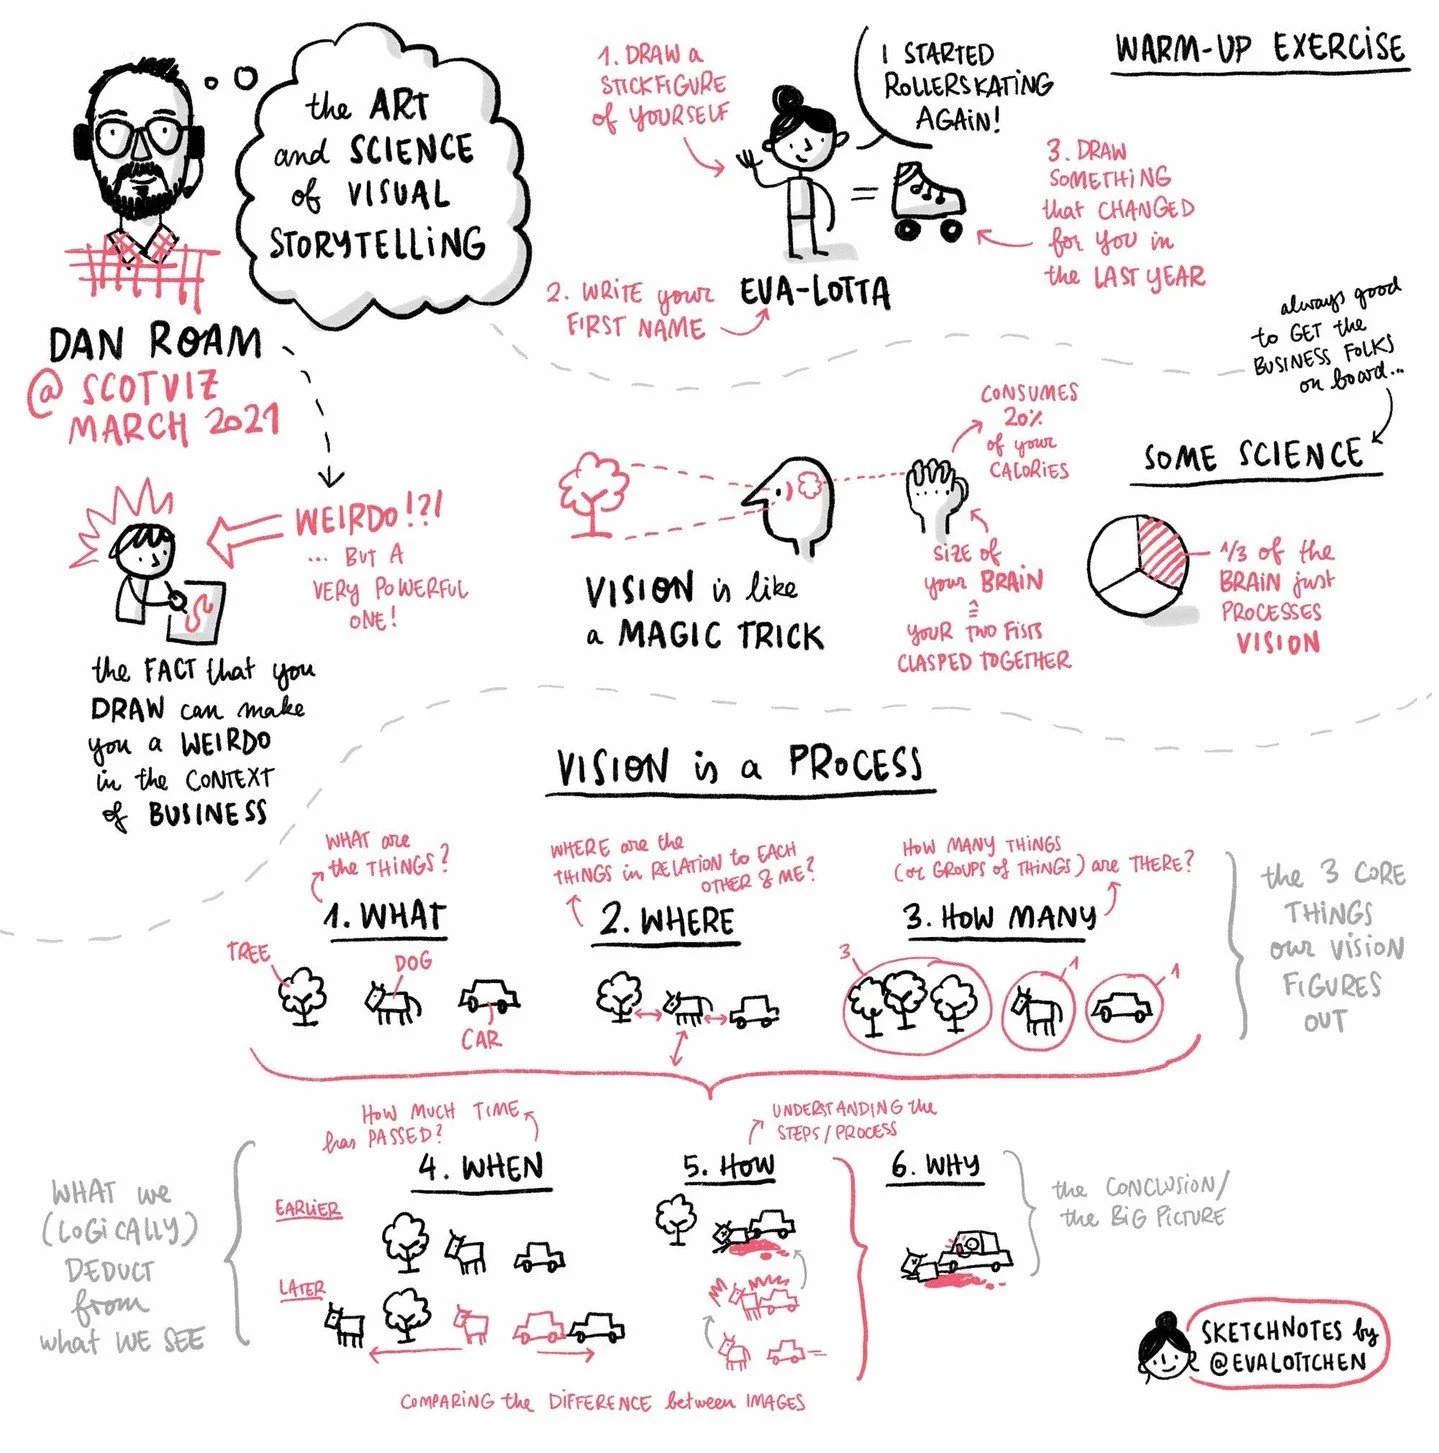 the ART
and SCIENCE
of VISUAL
STORYTELLING
DAN ROAM
@ SCOTVIZ
MARCH 2021
WARM-UP EXERCISE
1. DRAW a
STICKFIGURE
of YOURSELF
I STARTED
ROLLERSKATING
AGAIN!
=
3. DRAW
SOMETHING
that CHANGED
for YOU in
the LAST YEAR
2. WRITE your
FIRST NAME
EVA-LOTTA
WEIRDO!?!
... BUT A
VERY POWERFUL
ONE!
the FACT that you
DRAW can make
you a WEIRDO
in the CONTEXT
of BUSINESS
always good
to GET the
BUSINESS FOLKS
on board...
SOME SCIENCE
VISION is like
a MAGIC TRICK
CONSUMES
20%
of your
CALORIES
SIZE of
your BRAIN
≙
YOUR TWO FISTS
CLASPED TOGETHER
1/3 of the
BRAIN just
PROCESSES
VISION
VISION is a PROCESS
WHAT are
the THINGS?
1. WHAT
TREE
DOG
CAR
WHERE are the
THINGS in RELATION to EACH
OTHER & ME?
2. WHERE
HOW MANY THINGS
(or GROUPS of THINGS) are THERE?
3. HOW MANY
3
1
1
the 3 CORE
THINGS
our VISION
FIGURES
OUT
WHAT we
(LOGICALLY)
DEDUCT
from
what WE SEE
HOW MUCH TIME
has PASSED?
4. WHEN
EARLIER
LATER
UNDERSTANDING the
STEPS/PROCESS
5. HOW
6. WHY
the CONCLUSION/
the BIG PICTURE
COMPARING the DIFFERENCE between IMAGES
SKETCHNOTES by
@EVALOTTCHEN